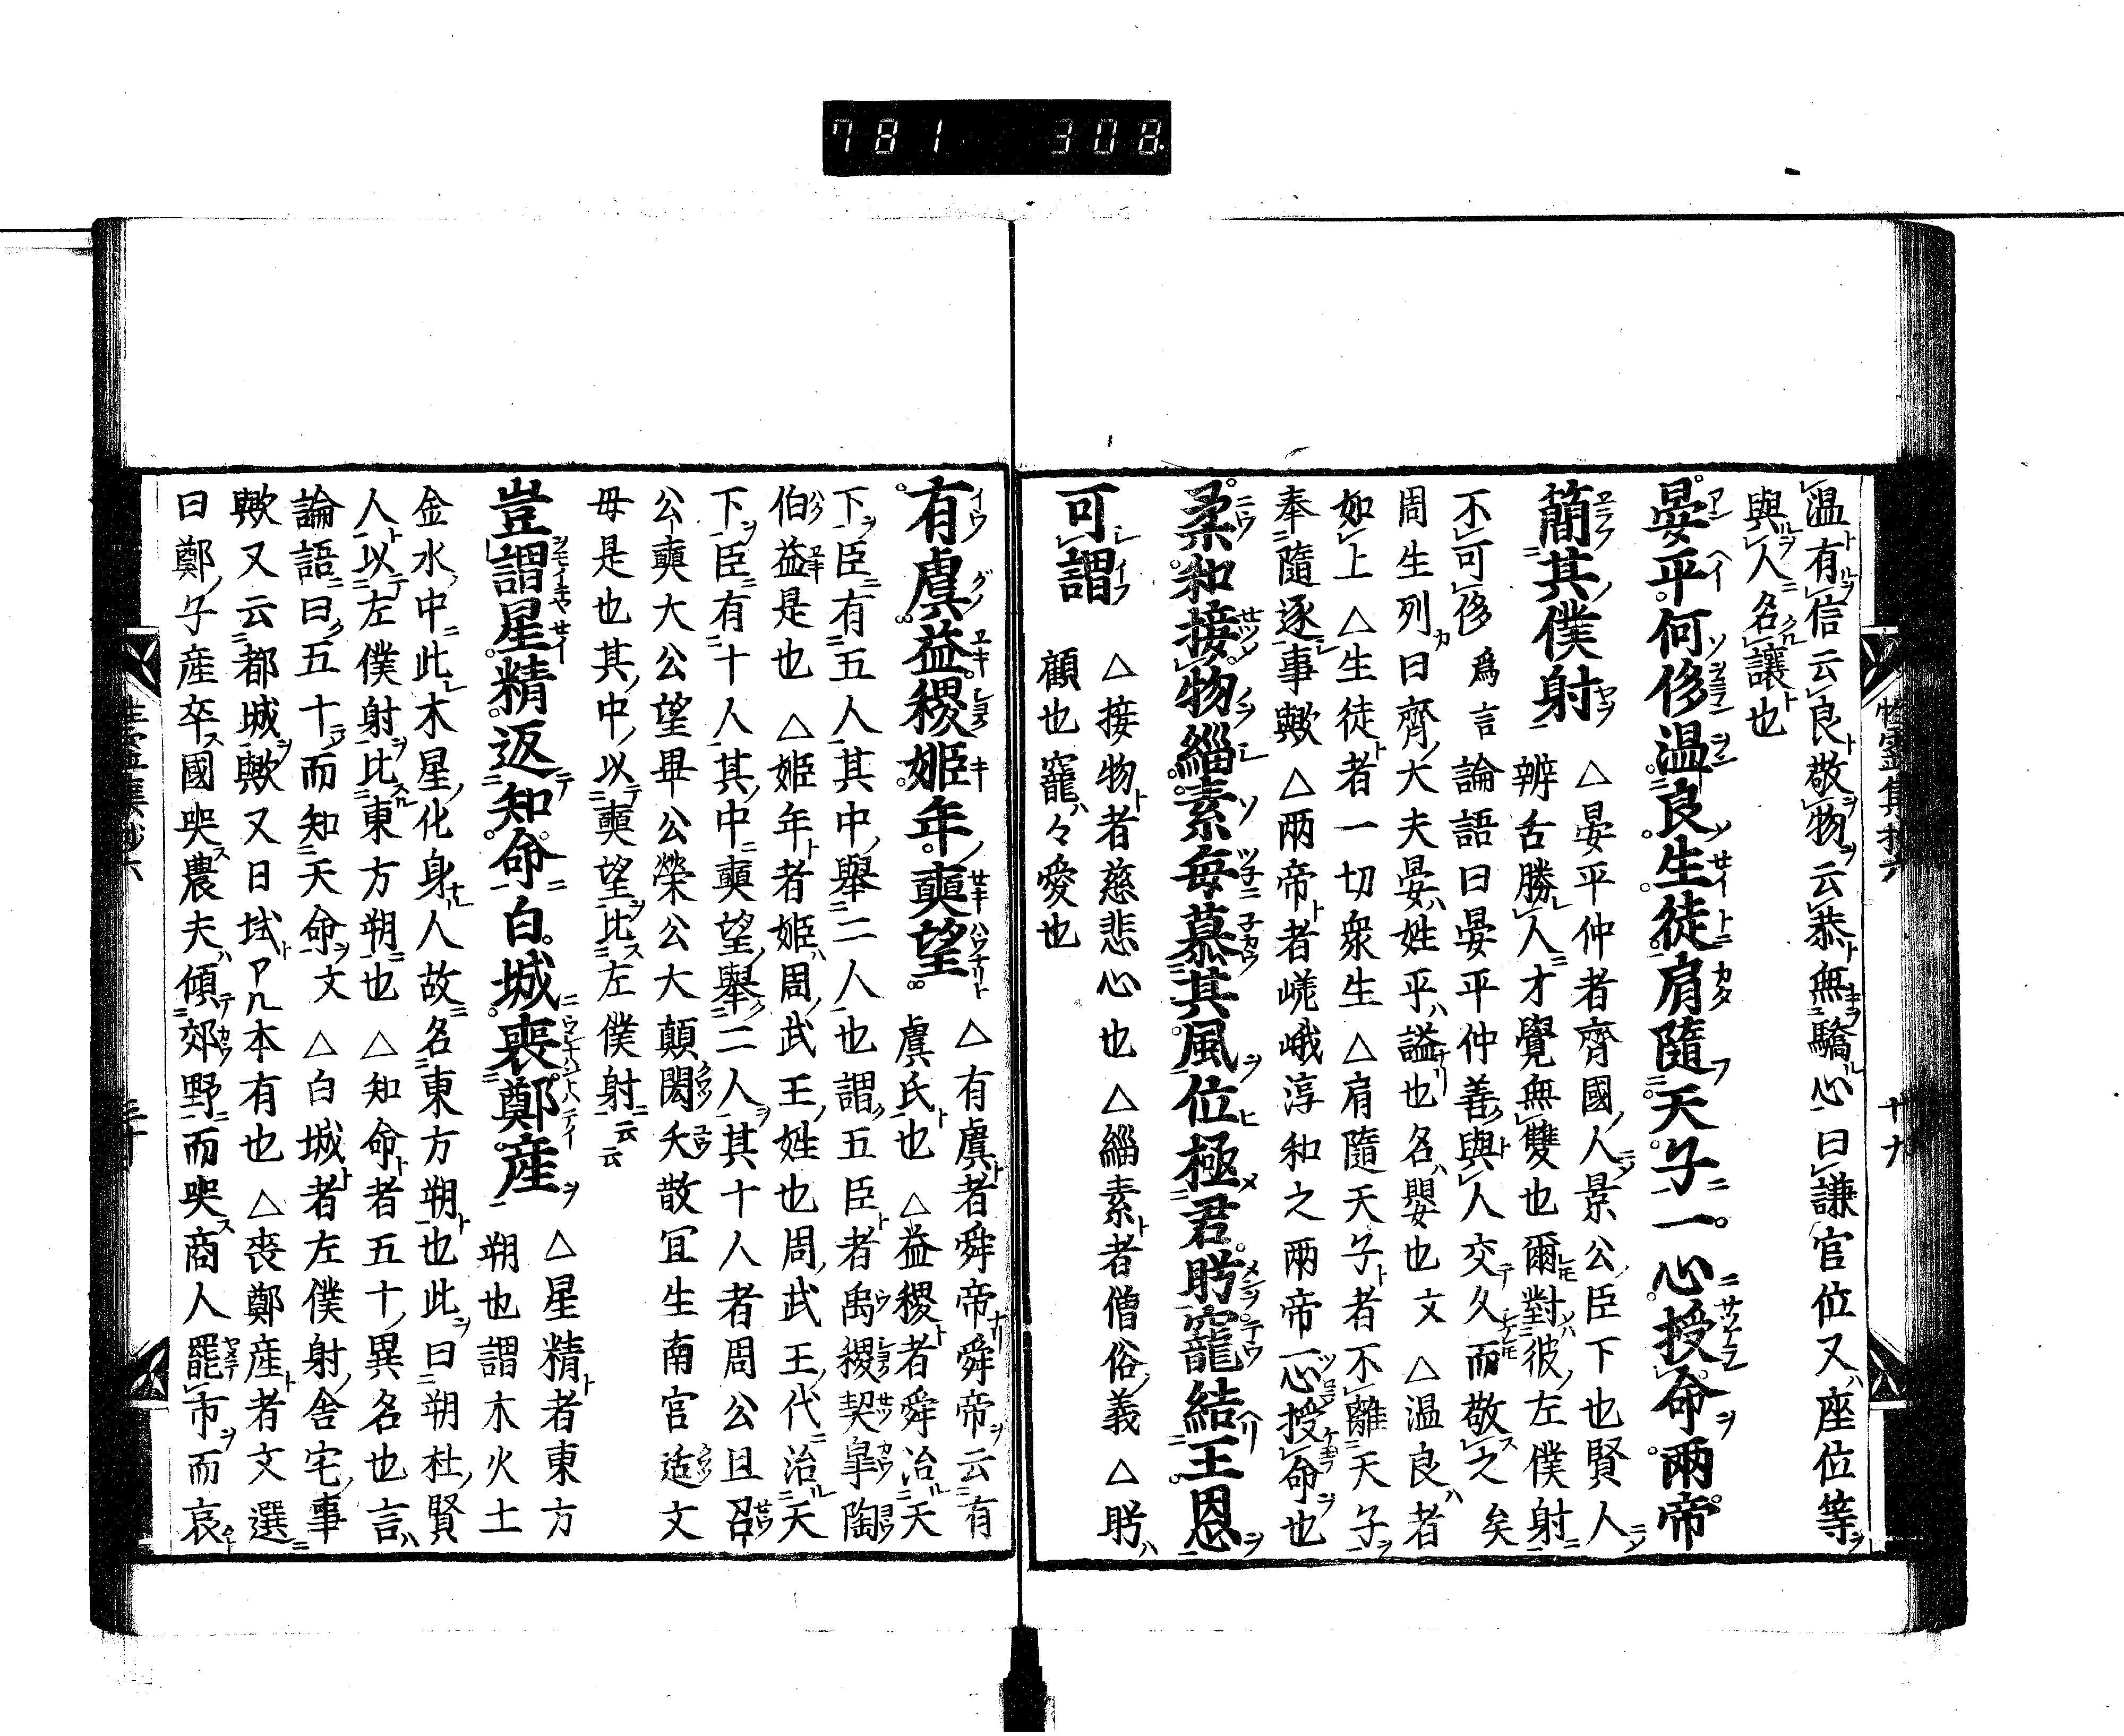 781 308
性霊集抄六 十九
温有信云良敬物云恭無驕心曰謙官位又座位等
與人名讓也
晏平何侈温良生徒肩隨天子一心授命兩帝
簡其僕射 △晏平仲者齊國人景公臣下也賢人
辨舌勝人才覺無雙也爾對彼左僕射
不可侈 爲言 論語曰晏平仲善與人交久而敬之矣
周生列曰齊大夫晏姓平謚也名嬰也文 △温良者
如上 △生徒者一切衆生 △肩隨天子者不離天子
奉隨逐事歟 △兩帝者嵯峨淳和之兩帝一心授命也
柔和接物緇素毎慕其風位極君眄寵結王恩
可謂 △接物者慈悲心也 △緇素者僧俗義 △眄
顧也寵々愛也
有虞益稷姫年奭望 △有虞者舜帝舜帝云有
虞氏也 △益稷者舜治天
下臣有五人其中舉二人也謂五臣者禹稷契皐陶
伯益是也 △姫年者姫周武王姓也周武王代治天
下臣有十人其中奭望舉二人其十人者周公旦召
公奭大公望畢公榮公大顛閎夭散宜生南宮适文
母是也其中以奭望比左僕射云云
豈謂星精返知命白城喪鄭産 △星精者東方
朔也謂木火土
金水中此木星化身人故名東方朔也此曰朔杜賢
人以左僕射比東方朔也 △知命者五十異名也言
論語曰五十而知天命文 △白城者左僕射舎宅事
歟又云都城歟又日域卩几本有也 △喪鄭産者文選
曰鄭子産卒國哭農夫傾郊野而哭商人罷市而哀
性霊集抄六 二十